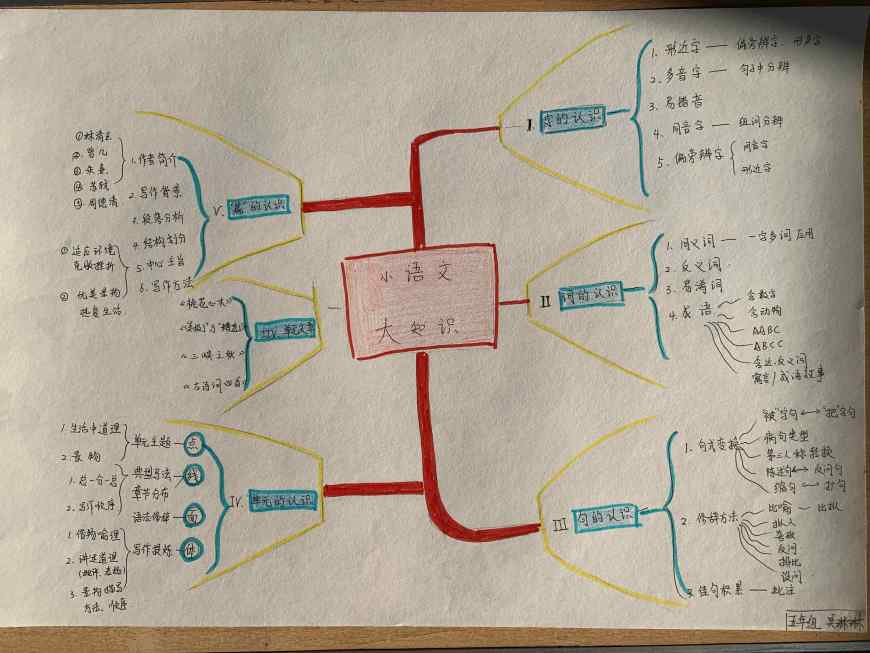 小语文
大知识
I. 字的认识
1. 形近字 — 偏旁辨字
2. 多音字 — 句子中分辨
3. 易错音
4. 同音字 — 组词分辨
5. 偏旁辨字
同音字
形近字
II 词的认识
1. 同义词 — 一字多词应用
2. 反义词
3. 易混词
4. 成语
含数字
含动物
AABC
ABCC
含近、反义词
寓言/成语故事
III 句的认识
1. 句式变换
"被"字句 ↔ "把"字句
病句类型
第三人称转换
陈述句 ↔ 反问句
缩句 ↔ 扩句
2. 修辞方法
比喻 — 比拟
拟人
夸张
反问
排比
设问
3. 佳句积累 — 批注
IV. 单元的认识
点 单元主题
1. 生活中道理
2. 景物
线 典型写法
章节分布
1. 总—分—总
2. 写作顺序
面 语法修辞
体 写作提炼
1. 借物喻理
2. 讲述道理
3. 景物描写
方法、顺序
IV. 单元文章
《桃花心木》
《三峡之秋》
《古诗词四首》
V. "篇"的认识
1. 作者简介
①林清玄
④ 苏轼
2. 写作背景
3. 段落分析
4. 结构划分
5. 中心主旨
① 适应环境
克服挫折
② 优美景物
热爱生活
6. 写作方法
五年组 吴琳琳